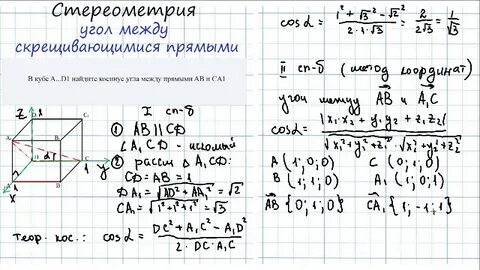 Стереометрия
угол между
скрещивающимися прямыми
В кубе A...D1 найдите косинус угла между прямыми AB и CA1
I сп-б
① AB || CD
∠A₁CD - искомый
② рассм △A₁CD:
CD = AB = 1
DA₁ = √(AD² + AA₁²) = √2
CA₁ = √(1² + 1² + 1²) = √3
теор. кос.: cos α = (DC² + A₁C² − A₁D²) / (2 · DC · A₁C)
cos α = (1² + √3² − √2²) / (2 · 1 · √3) = 2 / (2√3) = 1/√3
II сп-б (метод координат)
угол между AB и A₁C
cos α = |x₁·x₂ + y₁y₂ + z₁z₂| / (√(x₁² + y₁² + z₁²) · √(x₂² + y₂² + z₂²))
A (1; 0; 0) C (0; 1; 0)
B (1; 1; 0) A₁ (1; 0; 1)
AB {0; 1; 0} CA₁ {1; -1; 1}